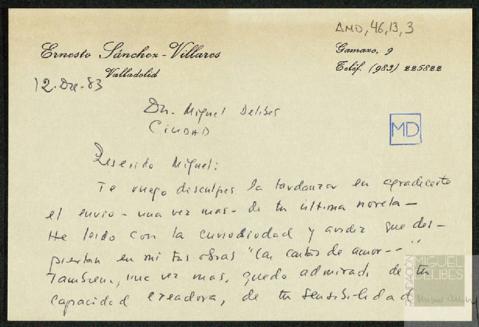 AMD, 46, 13, 3
Ernesto Sánchez-Villares
Valladolid
Gamazo, 9
Teléf. (983) 225822
12. Dic. 83
Dn. Miguel Delibes
CIUDAD
MD
Querido Miguel:
Te ruego disculpes la tardanza en agradecerte
el envío - una vez mas - de tu última novela -
He leido con la curiosidad y avidez que des-
piertan en mi tus obras "Las cartas de amor - - "
Tambien, una vez mas, quedo admirado de tu
capacidad creadora, de tu sensibilidad
FUNDACIÓN
MIGUEL
DELIBES